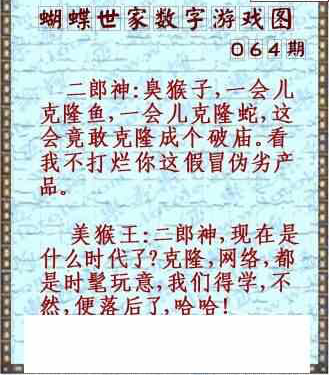 蝴蝶世家数字游戏图
064期
二郎神:臭猴子,一会儿
克隆鱼,一会儿克隆蛇,这
会竟敢克隆成个破庙。看
我不打烂你这假冒伪劣产
品。
美猴王:二郎神,现在是
什么时代了?克隆,网络,都
是时髦玩意,我们得学,不
然,便落后了,哈哈!